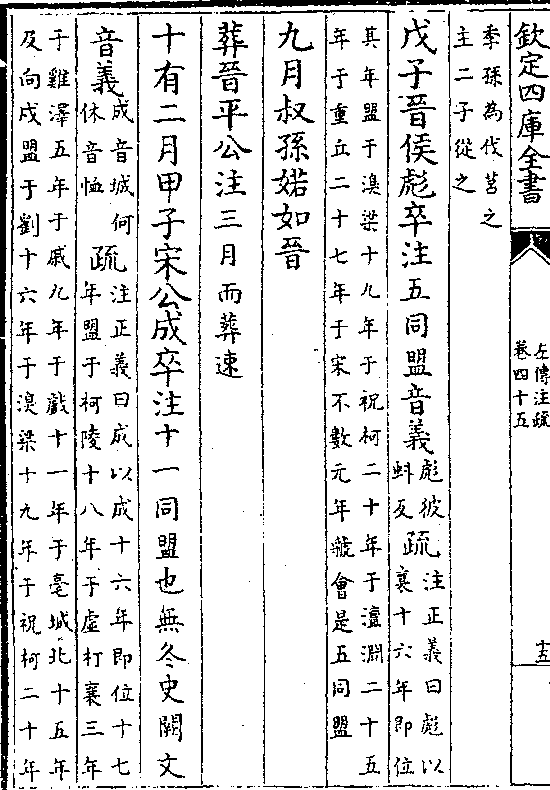 欽定四庫全書
左傳注疏
卷四十五
十五
季孫為伐莒之
主二子從之
戊子晉侯彪卒注五同盟音義
彪彼
蚪反
疏
注正義曰彪以
襄十六年即位
其年盟于湨梁十九年于祝柯二十年于澶淵二十五
年于重丘二十七年于宋不數元年虢會是五同盟
九月叔孫婼如晉
葬晉平公注三月而葬速
十有二月甲子宋公成卒注十一同盟也無冬史闕文
音義
成音城何
休音恤
疏
注正義曰成以成十六年即位十七
年盟于柯陵十八年于虛朾襄三年
于雞澤五年于戚九年于戲十一年于亳城北十五年
及向戍盟于劉十六年于湨梁十九年于祝柯二十年